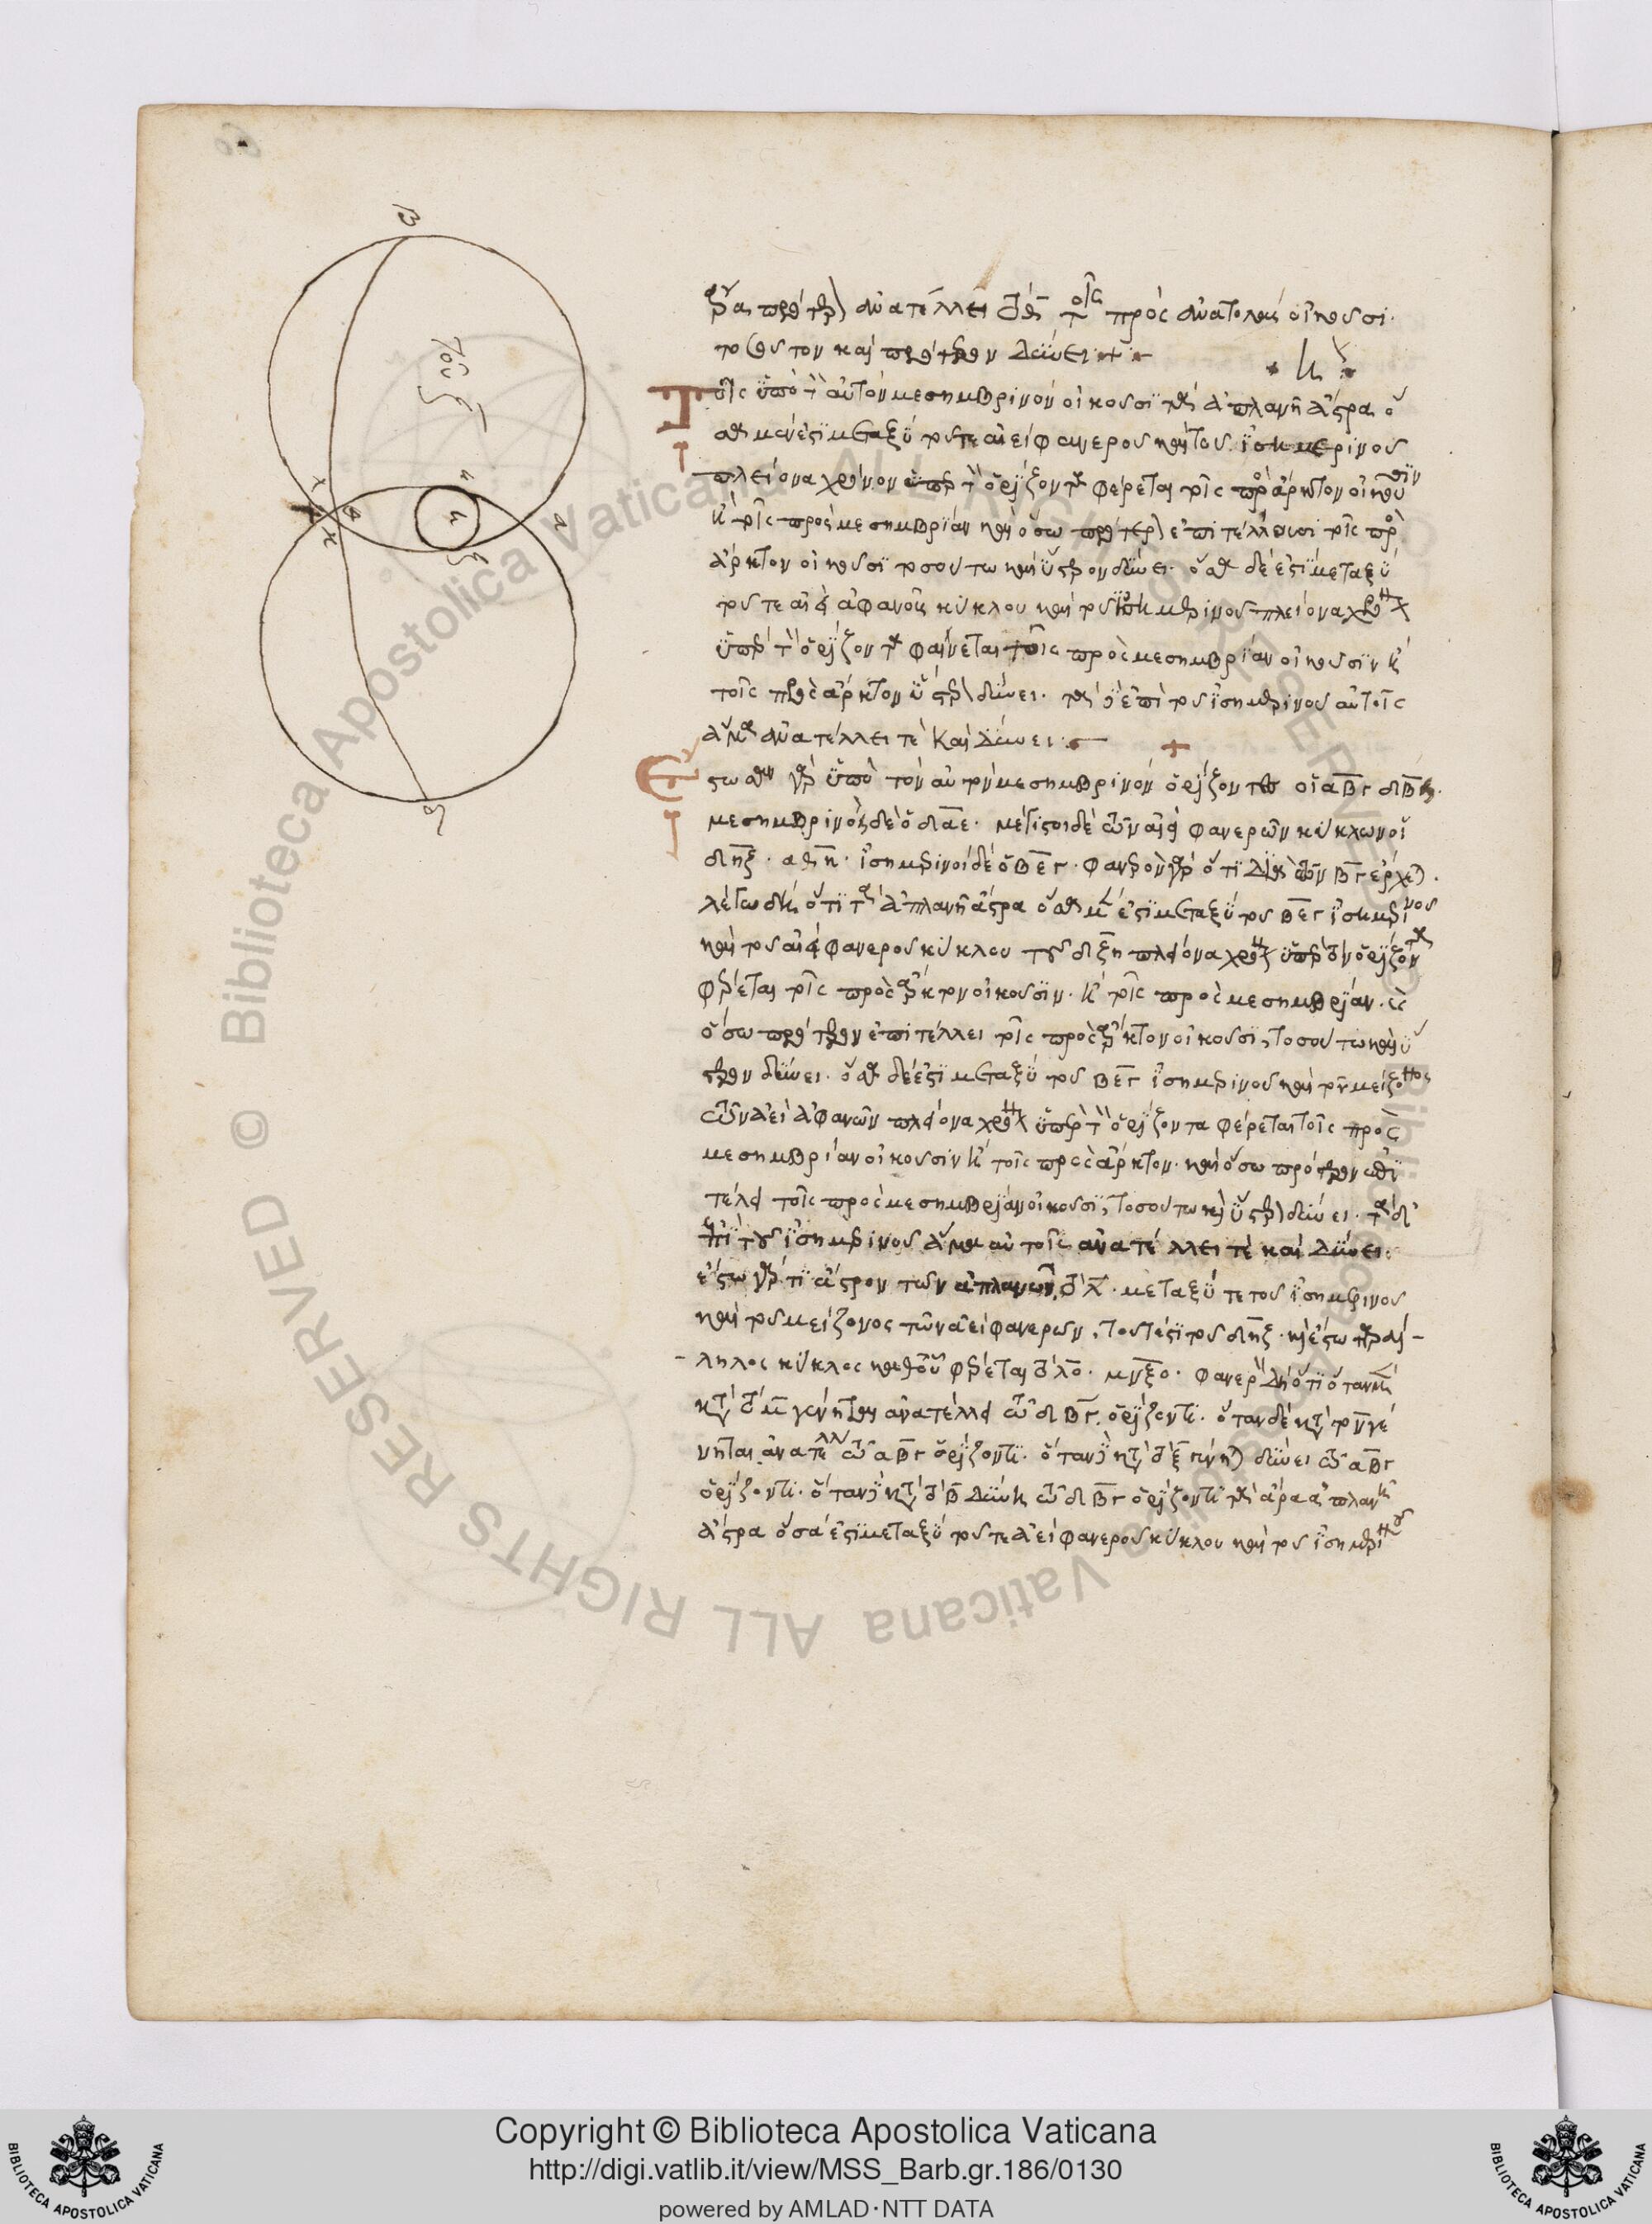 β
τοῦ ζ
α
πρὸς ἀνατολὰς οἰκοῦσι.
τοσοῦτον καὶ πρότερον δύνει
η
Τοῖς ὑπὸ τὸν αὐτὸν μεσημβρινὸν οἰκοῦσι τὰ ἀπλανῆ ἄστρα ὅ
σα μέν ἐστι μεταξὺ τοῦ τε ἀεὶ φανεροῦ καὶ τοῦ ἰσημερινοῦ
πλείονα χρόνον ὑπὲρ τὸν ὁρίζοντα φέρεται τοῖς πρὸς ἄρκτον οἰκοῦσιν
ἢ τοῖς πρὸς μεσημβρίαν καὶ ὅσω πρότερον ἐπιτέλλουσι τοῖς πρὸς
ἄρκτον οἰκοῦσι τοσούτω καὶ ὕστερον δύνει. ὅσα δέ ἐστι μεταξὺ
τοῦ τε ἀεὶ ἀφανοῦς κύκλου καὶ τοῦ ἰσημερινοῦ πλείονα χρόνον
ὑπὲρ τὸν ὁρίζοντα φαίνεται τοῖς πρὸς μεσημβρίαν οἰκοῦσιν ἢ
τοῖς πρὸς ἄρκτον ὕστερον δύνει. τὰ δὲ ἐπὶ τοῦ ἰσημερινοῦ αὐτοῖς
ἅμα ἀνατέλλει τὲ καὶ δύνει
Ἔστωσαν γὰρ ὑπὸ τὸν αὐτὸν μεσημβρινὸν ὁρίζοντες οἱ αβγ δβγ.
μεσημβρινὸς δὲ ὁ δαε. μέγιστοι δὲ τῶν ἀεὶ φανερῶν κύκλων οἱ
δηξ. αθη. ἰσημερινὸς δὲ ὁ βεγ. φανερὸν γὰρ ὅτι διὰ τῶν βγ ἔρχεται.
λέγω δὴ ὅτι τὰ ἀπλανῆ ἄστρα ὅσα μέν ἐστι μεταξὺ τοῦ βεγ ἰσημερινοῦ
καὶ τοῦ ἀεὶ φανεροῦ κύκλου τοῦ δξη πλείονα χρόνον ὑπὲρ τὸν ὁρίζοντα
φέρεται τοῖς πρὸς ἄρκτον οἰκοῦσιν. ἢ τοῖς πρὸς μεσημβρίαν. καὶ
ὅσω πρότερον ἐπιτέλλει τοῖς πρὸς ἄρκτον οἰκοῦσι, τοσούτω καὶ ὕ
στερον δύνει. ὅσα δέ ἐστι μεταξὺ τοῦ βεγ ἰσημερινοῦ καὶ τοῦ μείζονος
τῶν ἀεὶ ἀφανῶν πλείονα χρόνον ὑπὲρ τὸν ὁρίζοντα φέρεται τοῖς πρὸς
μεσημβρίαν οἰκοῦσιν ἢ τοῖς πρὸς ἄρκτον. καὶ ὅσω πρότερον ἐπι
τέλλει τοῖς πρὸς μεσημβρίαν οἰκοῦσι, τοσούτω καὶ ὕστερον δύνει. τὰ δ'
ἐπὶ τοῦ ἰσημερινοῦ ἅμα αὐτοῖς ἀνατέλλει τὲ καὶ δύνει.
ἔστω γάρ τι ἄστρον τῶν ἀπλανῶν, τὸ λ. μεταξύ τε τοῦ ἰσημερινοῦ
καὶ τοῦ μείζονος τῶν ἀεὶ φανερῶν, τουτέστι τοῦ δηξ. καὶ ἔστω παράλ-
ληλος κύκλος καθ' οὗ φέρεται τὸ λ ὁ. μνξο. φανερὸν δὴ ὅτι ὅταν μὲν
κατὰ τὸ μ γένηται ἀνατέλλει τῶ δβγ. ὁρίζοντι. ὅταν δὲ κατὰ τὸ ν γέ
νηται ἀνατέλλει τῶ αβγ ὁρίζοντι. ὅταν δὲ κατὰ τὸ ξ γένηται δύνει τῶ αβγ
ὁρίζοντι. ὅταν δὲ κατὰ τὸ β δύνη τῶ δβγ ὁρίζοντι τὰ ἄρα ἀπλανῆ
ἄστρα ὅσα ἐστὶ μεταξὺ τοῦ τε ἀεὶ φανεροῦ κύκλου καὶ τοῦ ἰσημερινοῦ
© Biblioteca Apostolica Vaticana ALL RIGHTS RESERVED
Copyright © Biblioteca Apostolica Vaticana
http://digi.vatlib.it/view/MSS_Barb.gr.186/0130
powered by AMLAD·NTT DATA
BIBLIOTECA APOSTOLICA VATICANA
BIBLIOTECA APOSTOLICA VATICANA